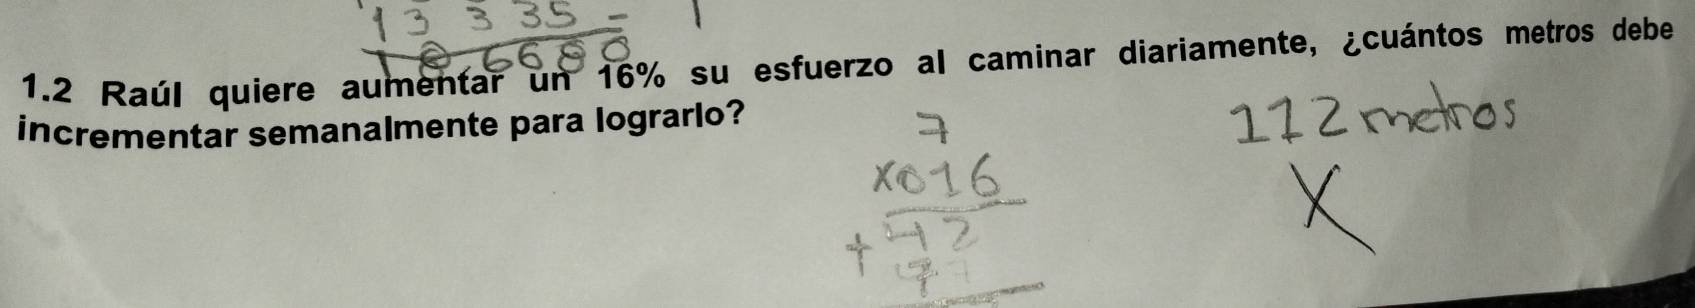 13 3 35 =
1.2 Raúl quiere aumentar un 16% su esfuerzo al caminar diariamente, ¿cuántos metros debe
incrementar semanalmente para lograrlo?
7
x016
+42
7
112 metros
X